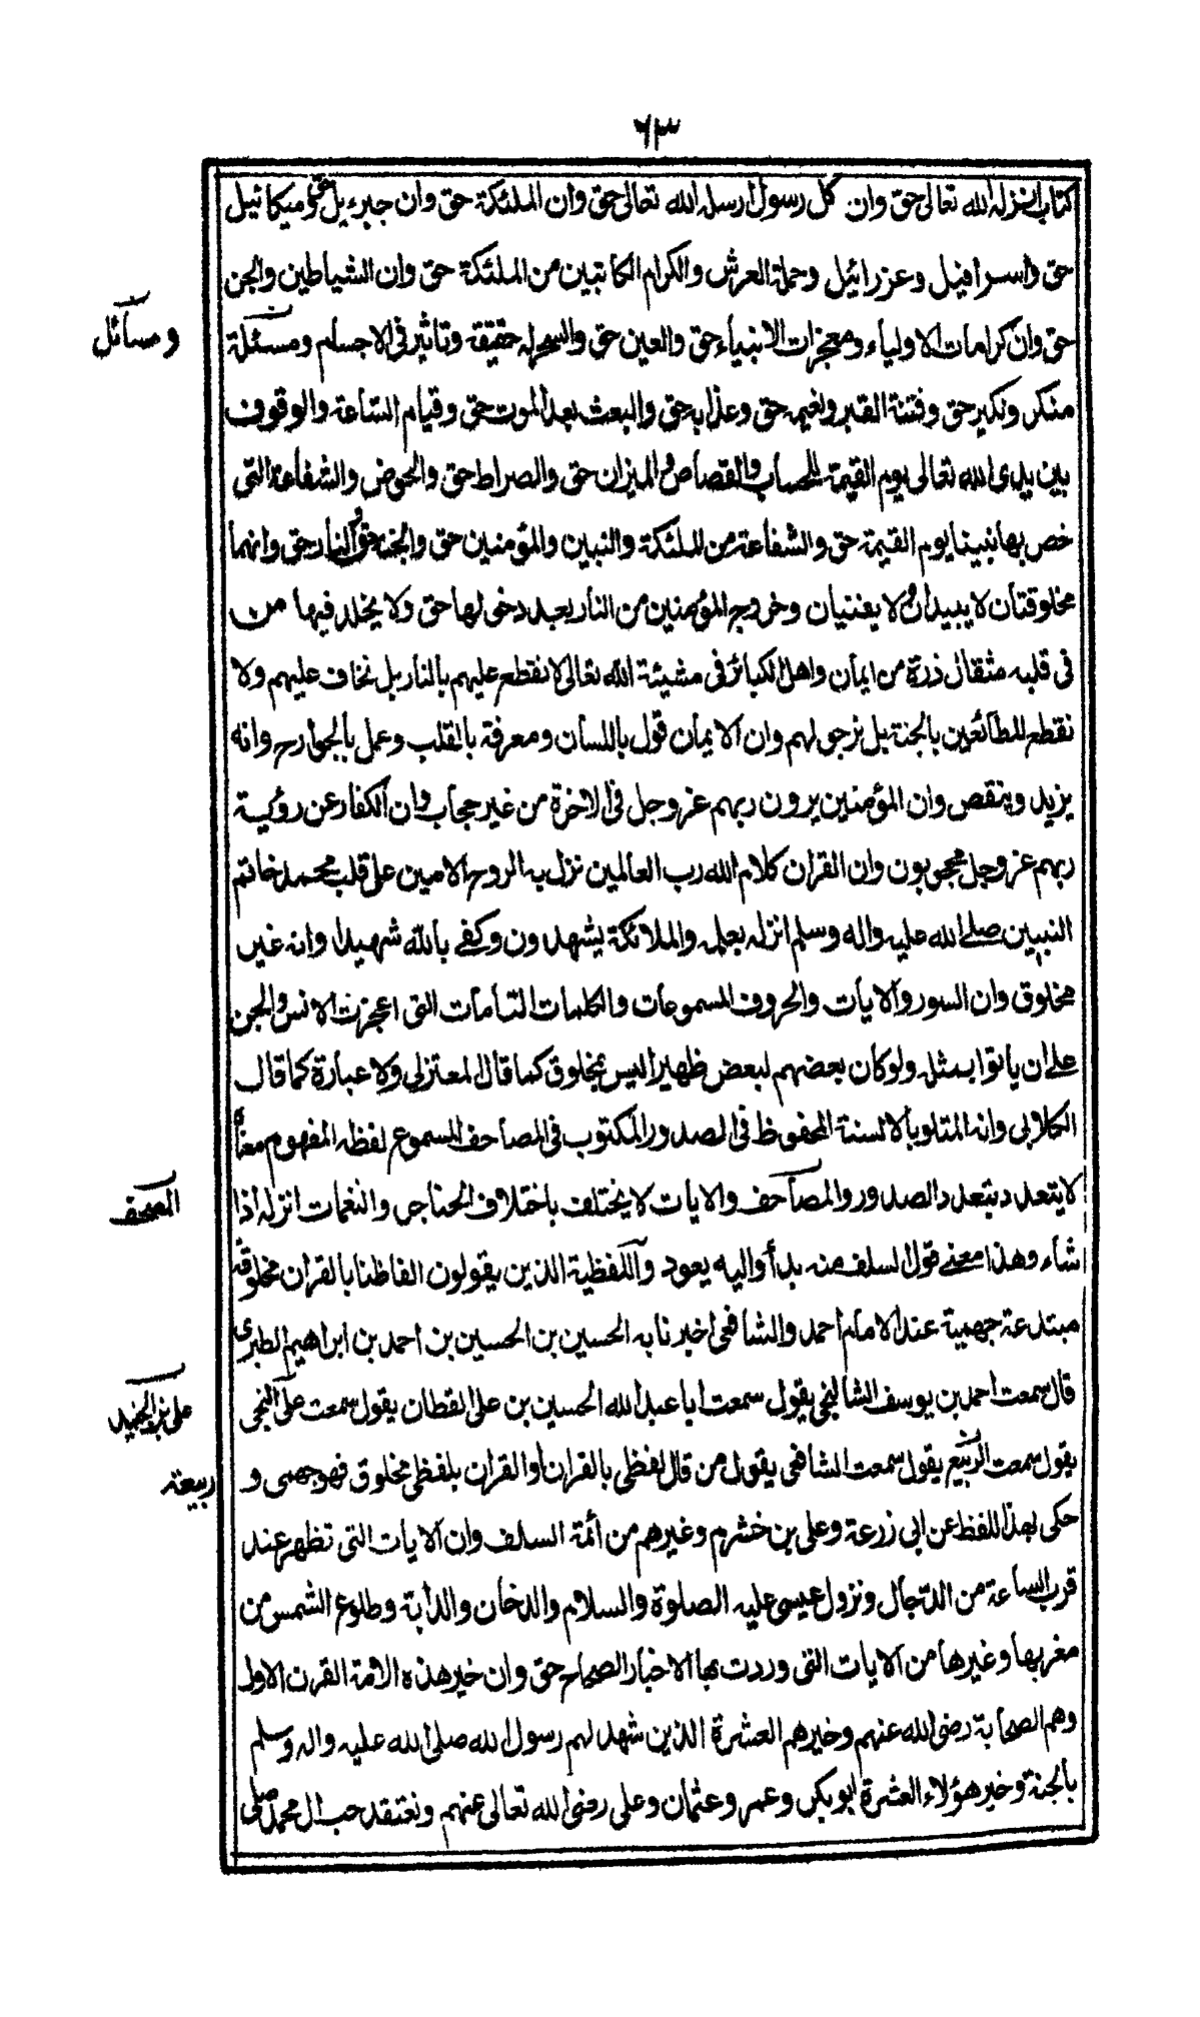 ٦٣
كتاب انزله الله تعالى حق وان كل رسول ارسله الله تعالى حق وان الملئكة حق وان جبرءيل حق وميكائيل
حق واسرافيل وعزرائيل وحملة العرش والكرام الكاتبين من الملئكة حق وان الشياطين والجن
حق وان كرامات الاولياء ومعجزات الانبياء حق والعين حق والسحر له حقيقة وتاثير فى الاجسام ومسئلة
ومسائل
منكر ونكير حق وفتنة القبر ونعيمه حق وعذابه حق والبعث بعد الموت حق وقيام الساعة والوقوف
بين يدى الله تعالى يوم القيمة للحساب والقصاص والميزان حق والصراط حق والحوض والشفاعة التى
خص بها نبينا يوم القيمة حق والشفاعة من الملئكة والنبين والمؤمنين حق والجنة حق والنار حق وانهما
مخلوقتان لا يبيدان ولا يفنيان وخروج المؤمنين من النار بعد دخولها حق ولا يخلد فيها من
فى قلبه مثقال ذرة من ايمان واهل الكبائر فى مشيئة الله تعالى لا نقطع عليهم بالنار بل نخاف عليهم ولا
نقطع للطائعين بالجنة بل نرجو لهم وان الايمان قول باللسان ومعرفة بالقلب وعمل بالجوارح وانه
يزيد وينقص وان المؤمنين يرون ربهم عز وجل فى الاخرة من غير حجاب وان الكفار عن رؤية
ربهم عز وجل محجوبون وان القران كلام الله رب العالمين نزل به الروح الامين على قلب محمد خاتم
النبيين صلے الله عليه واله وسلم انزله بعلمه والملائكة يشهدون وكفے بالله شهيدا وانه غير
مخلوق وان السور والايات والحروف المسموعات والكلمات التامات التى اعجزت الانس والجن
علے ان ياتوا بمثله ولو كان بعضهم لبعض ظهيرا ليس بمخلوق كما قال المعتزلى ولا عبارة كما قال
الكلابى وانه المتلو بالالسنة المحفوظ فى الصدور المكتوب فى المصاحف المسموع لفظه المفهوم معناه
لا يتعدد بتعدد الصدور والمصاحف والايات لا يختلف باختلاف الحناجر والنغمات انزله اذا
الصحف
شاء وهذا معنے قول السلف منه بدأ واليه يعود واللفظية الذين يقولون الفاظنا بالقران مخلوقة
مبتدعة جهمية عند الامام احمد والشافعى اخبرنا به الحسين بن الحسين بن احمد بن ابراهيم الطبرى
قال سمعت احمد بن يوسف الشالنجى يقول سمعت ابا عبد الله الحسين بن على القطان يقول سمعت على النجى
على بن الجنيد
يقول سمعت الربيع يقول سمعت الشافعى يقول من قال لفظى بالقران او القران بلفظى مخلوق فهو جهمى و
ربيعة
حكى بهذا اللفظ عن ابى زرعة وعلى بن خشرم وغيرهم من أئمة السلف وان الايات التى تظهر عند
قرب الساعة من الدجال ونزول عيسى عليه الصلوة والسلام والدخان والدابة وطلوع الشمس من
مغربها وغيرها من الايات التى وردت بها الاخبار الصحاح حق وان خير هذه الامة القرن الاول
وهم الصحابة رضى الله عنهم وخيرهم العشرة الذين شهد لهم رسول الله صلى الله عليه واله وسلم
بالجنة وخير هؤلاء العشرة ابو بكر وعمر وعثمان وعلى رضى الله تعالى عنهم ونعتقد حب ال محمد صلى